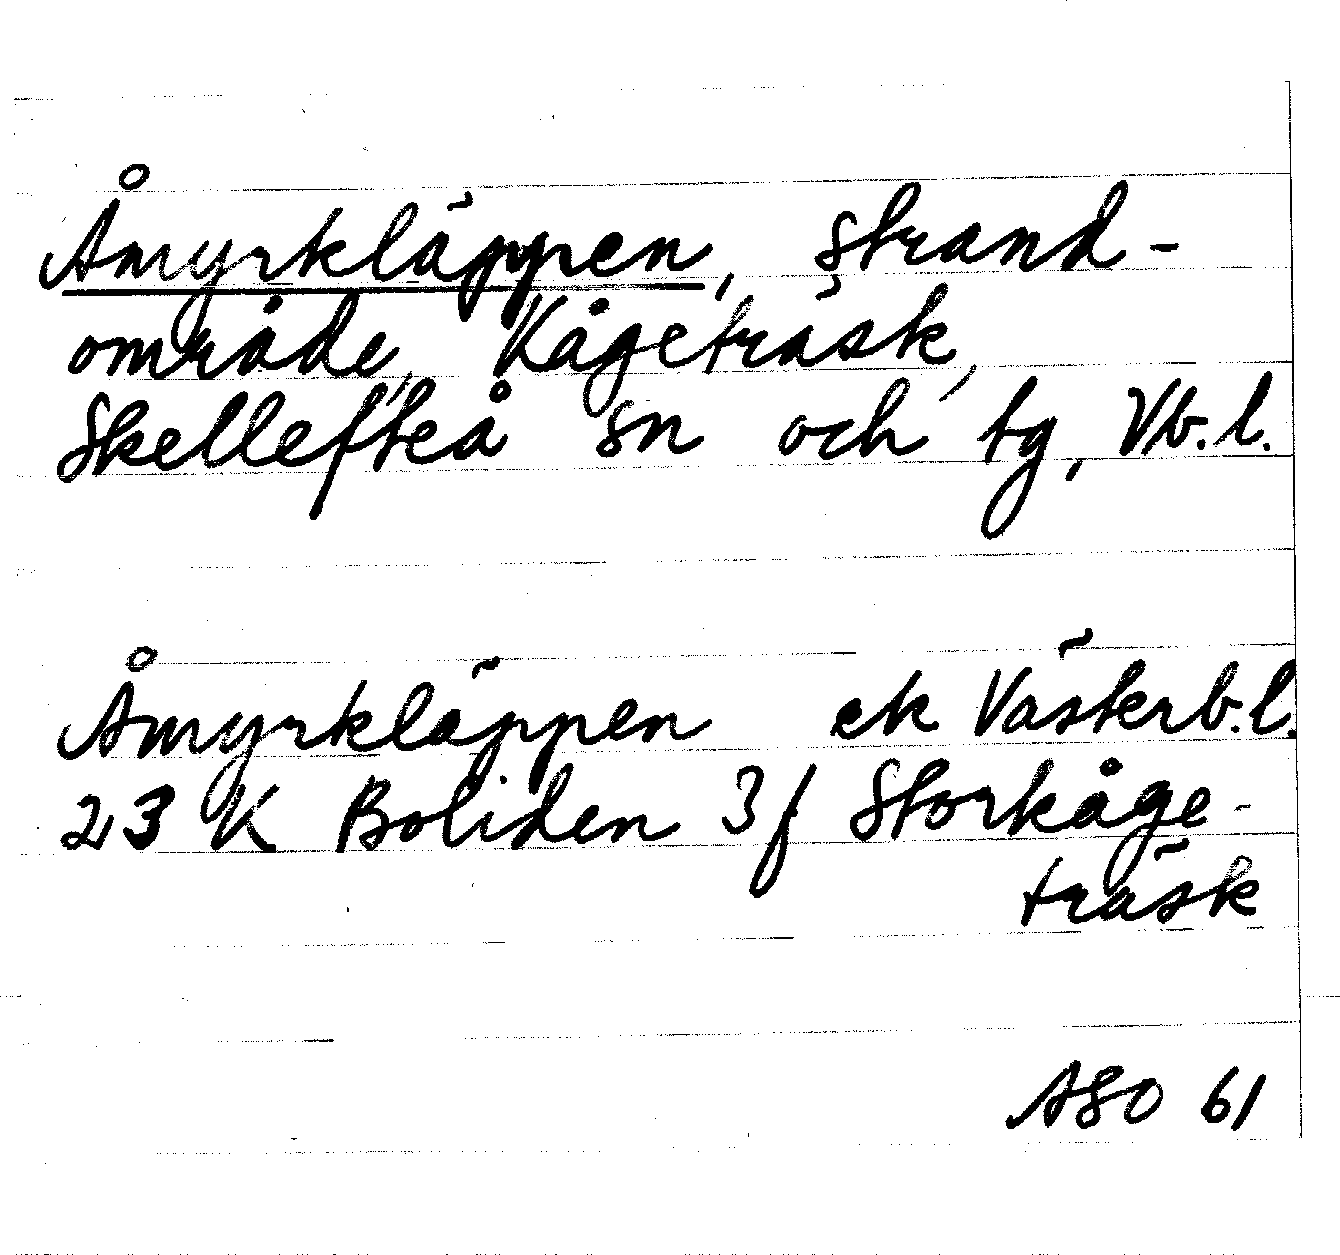 Åmyrkläppen, strand-
område, Kågeträsk,
Skellefteå sn och tg, Vb.l.
Åmyrkläppen ek Västerb.l.
23 K Boliden 3f Storkåge-
träsk
ASO 61